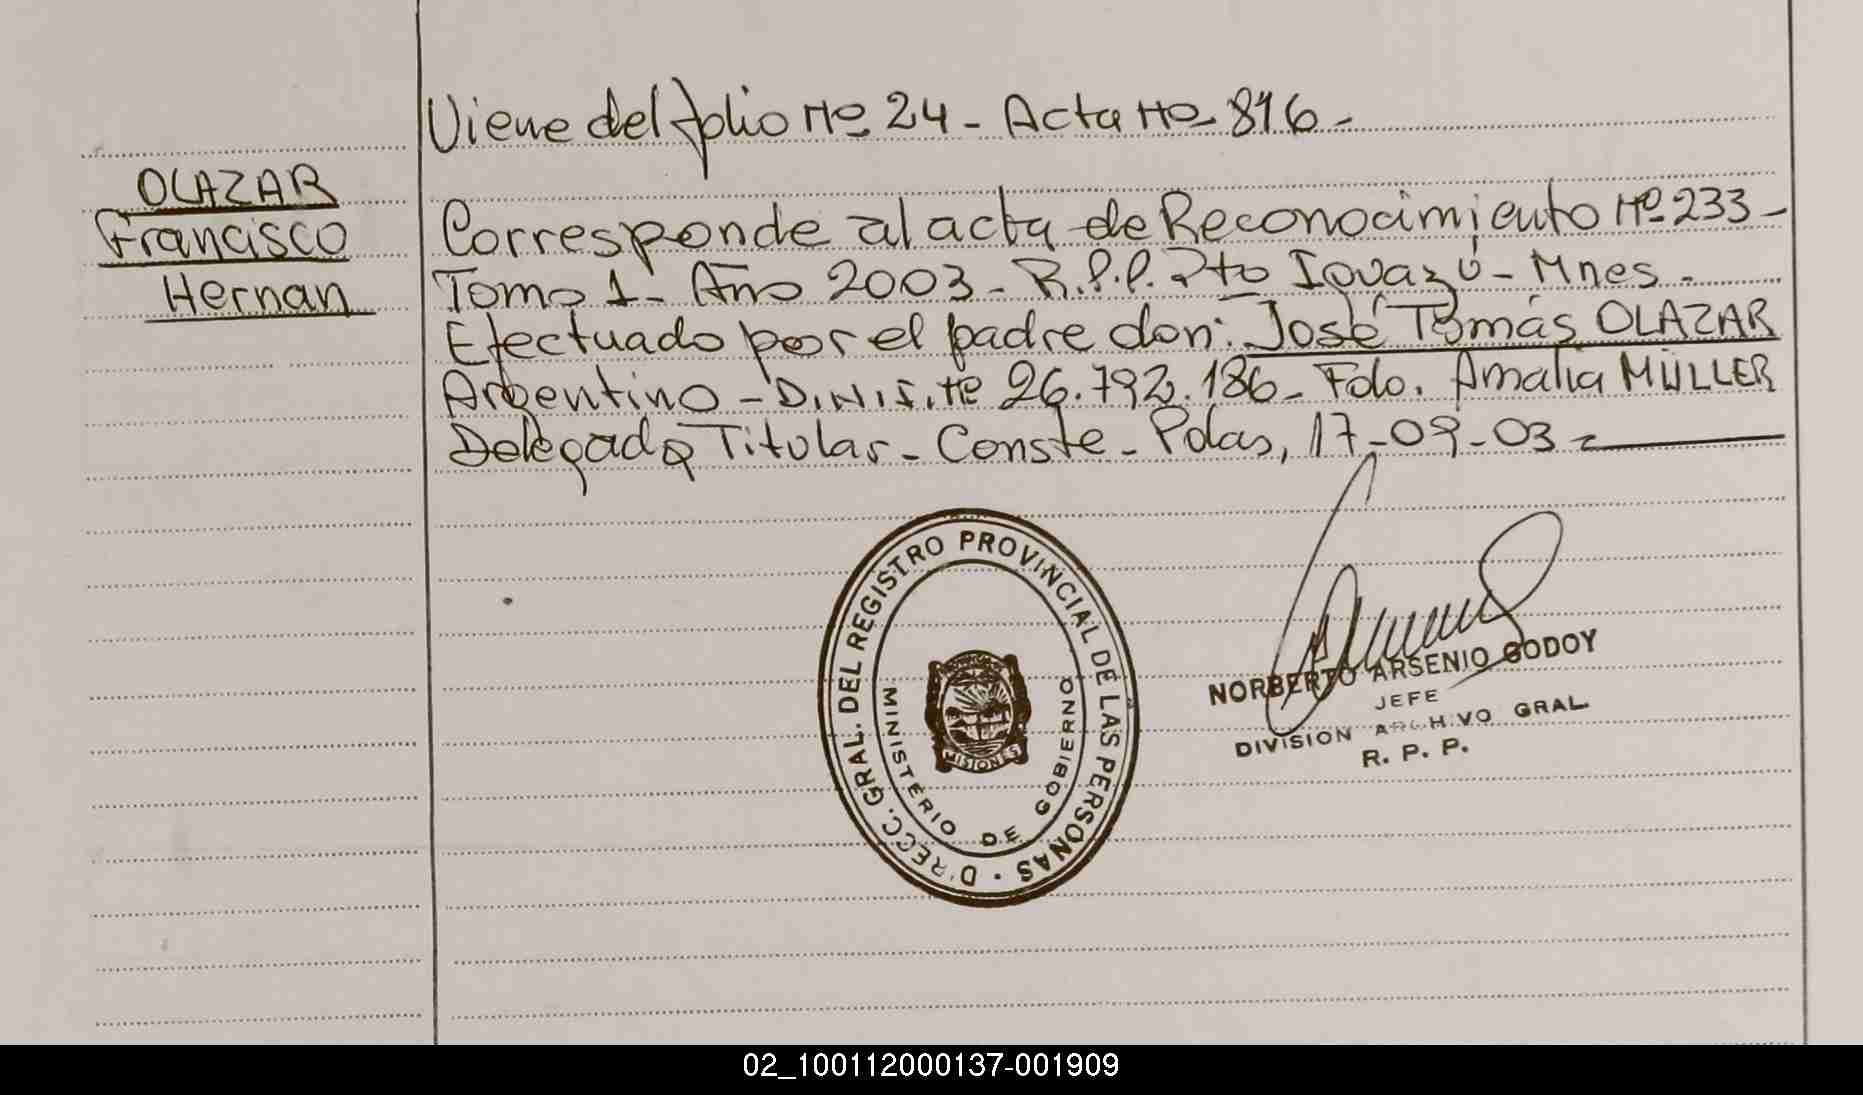 Viene del folio Nº 24 - Acta Nº 816 -
OLAZAR
Francisco
Hernan
Corresponde al acta de Reconocimiento Nº 233 -
Tomo 1 - Año 2003 - R.P.P. Pto Iguazú - Mnes -
Efectuado por el padre don: José Tomás OLAZAR
Argentino - D.N.I. Nº 26.792.186 - Fdo. Amalia MÜLLER
Delegada Titular - Conste - Pdas, 17-09-03 -
DIRECC. GRAL. DEL REGISTRO PROVINCIAL DE LAS PERSONAS
MINISTERIO DE GOBIERNO
MISIONES
NORBERTO ARSENIO GODOY
JEFE
DIVISION ARCHIVO GRAL.
R. P. P.
02_100112000137-001909